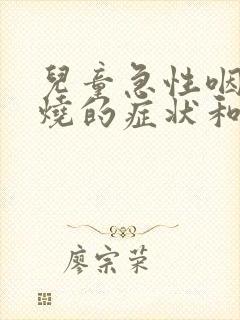 兒童急性咽
燒的症狀和
廖宗荣